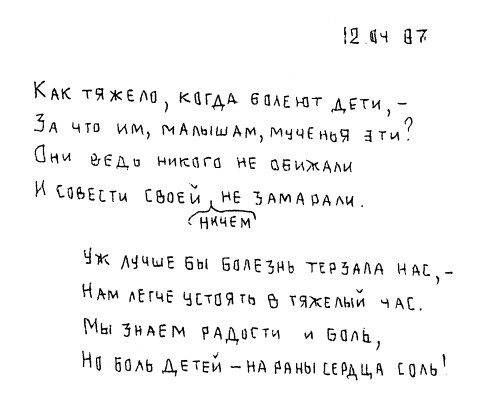 12.04 87
Как тяжело, когда болеют дети, –
За что им, малышам, мученья эти?
Они ведь никого не обижали
И совести своей, не замарали.
ничем
Уж лучше бы болезнь терзала нас, –
Нам легче устоять в тяжелый час.
Мы знаем радости и боль,
Но боль детей – на раны сердца соль!